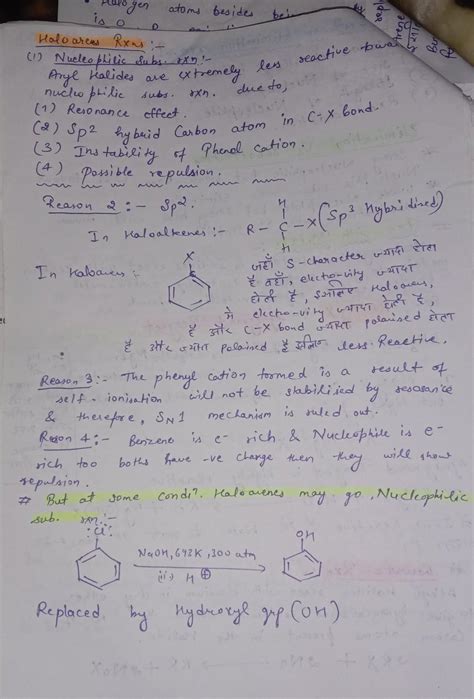 Halogen atoms besides
is
Haloarenes Rxns :-
(1) Nucleophilic Subs. rxn :-
Aryl Halides are extremely less reactive
nucleophilic subs. rxn. due to,
(1) Resonance effect.
(2) Sp2 hybrid Carbon atom in C-X bond.
(3) Instability of Phenol cation.
(4) possible repulsion.
Reason 2 :- Sp2.
H
In Haloalkenes :- R - C - X (Sp3 Hybridised)
H
X
In Haloarens :-
जहाँ S-character ज्यादा होता
है वहाँ, electro-vity ज्यादा
होती है, इसलिए Haloarens,
में electro-vity ज्यादा होती है,
है और C-X bond ज्यादा polarised होता
है और ज्यादा polarised है इसलिए less Reactive.
Reason 3 :- The phenyl cation formed is a result of
self-ionisation will not be stabilised by resosance
& therefore, SN1 mechanism is ruled out.
Reson 4 :- Benzene is e- rich & Nucleophile is e-
rich too boths have -ve charge then they will show
repulsion.
# But at some condi. Haloarenes may go, Nucleophilic
sub. rxn :-
Cl
OH
NaOH, 623K, 300 atm
(ii) H ⊕
Replaced by Hydroxyl grp (OH)